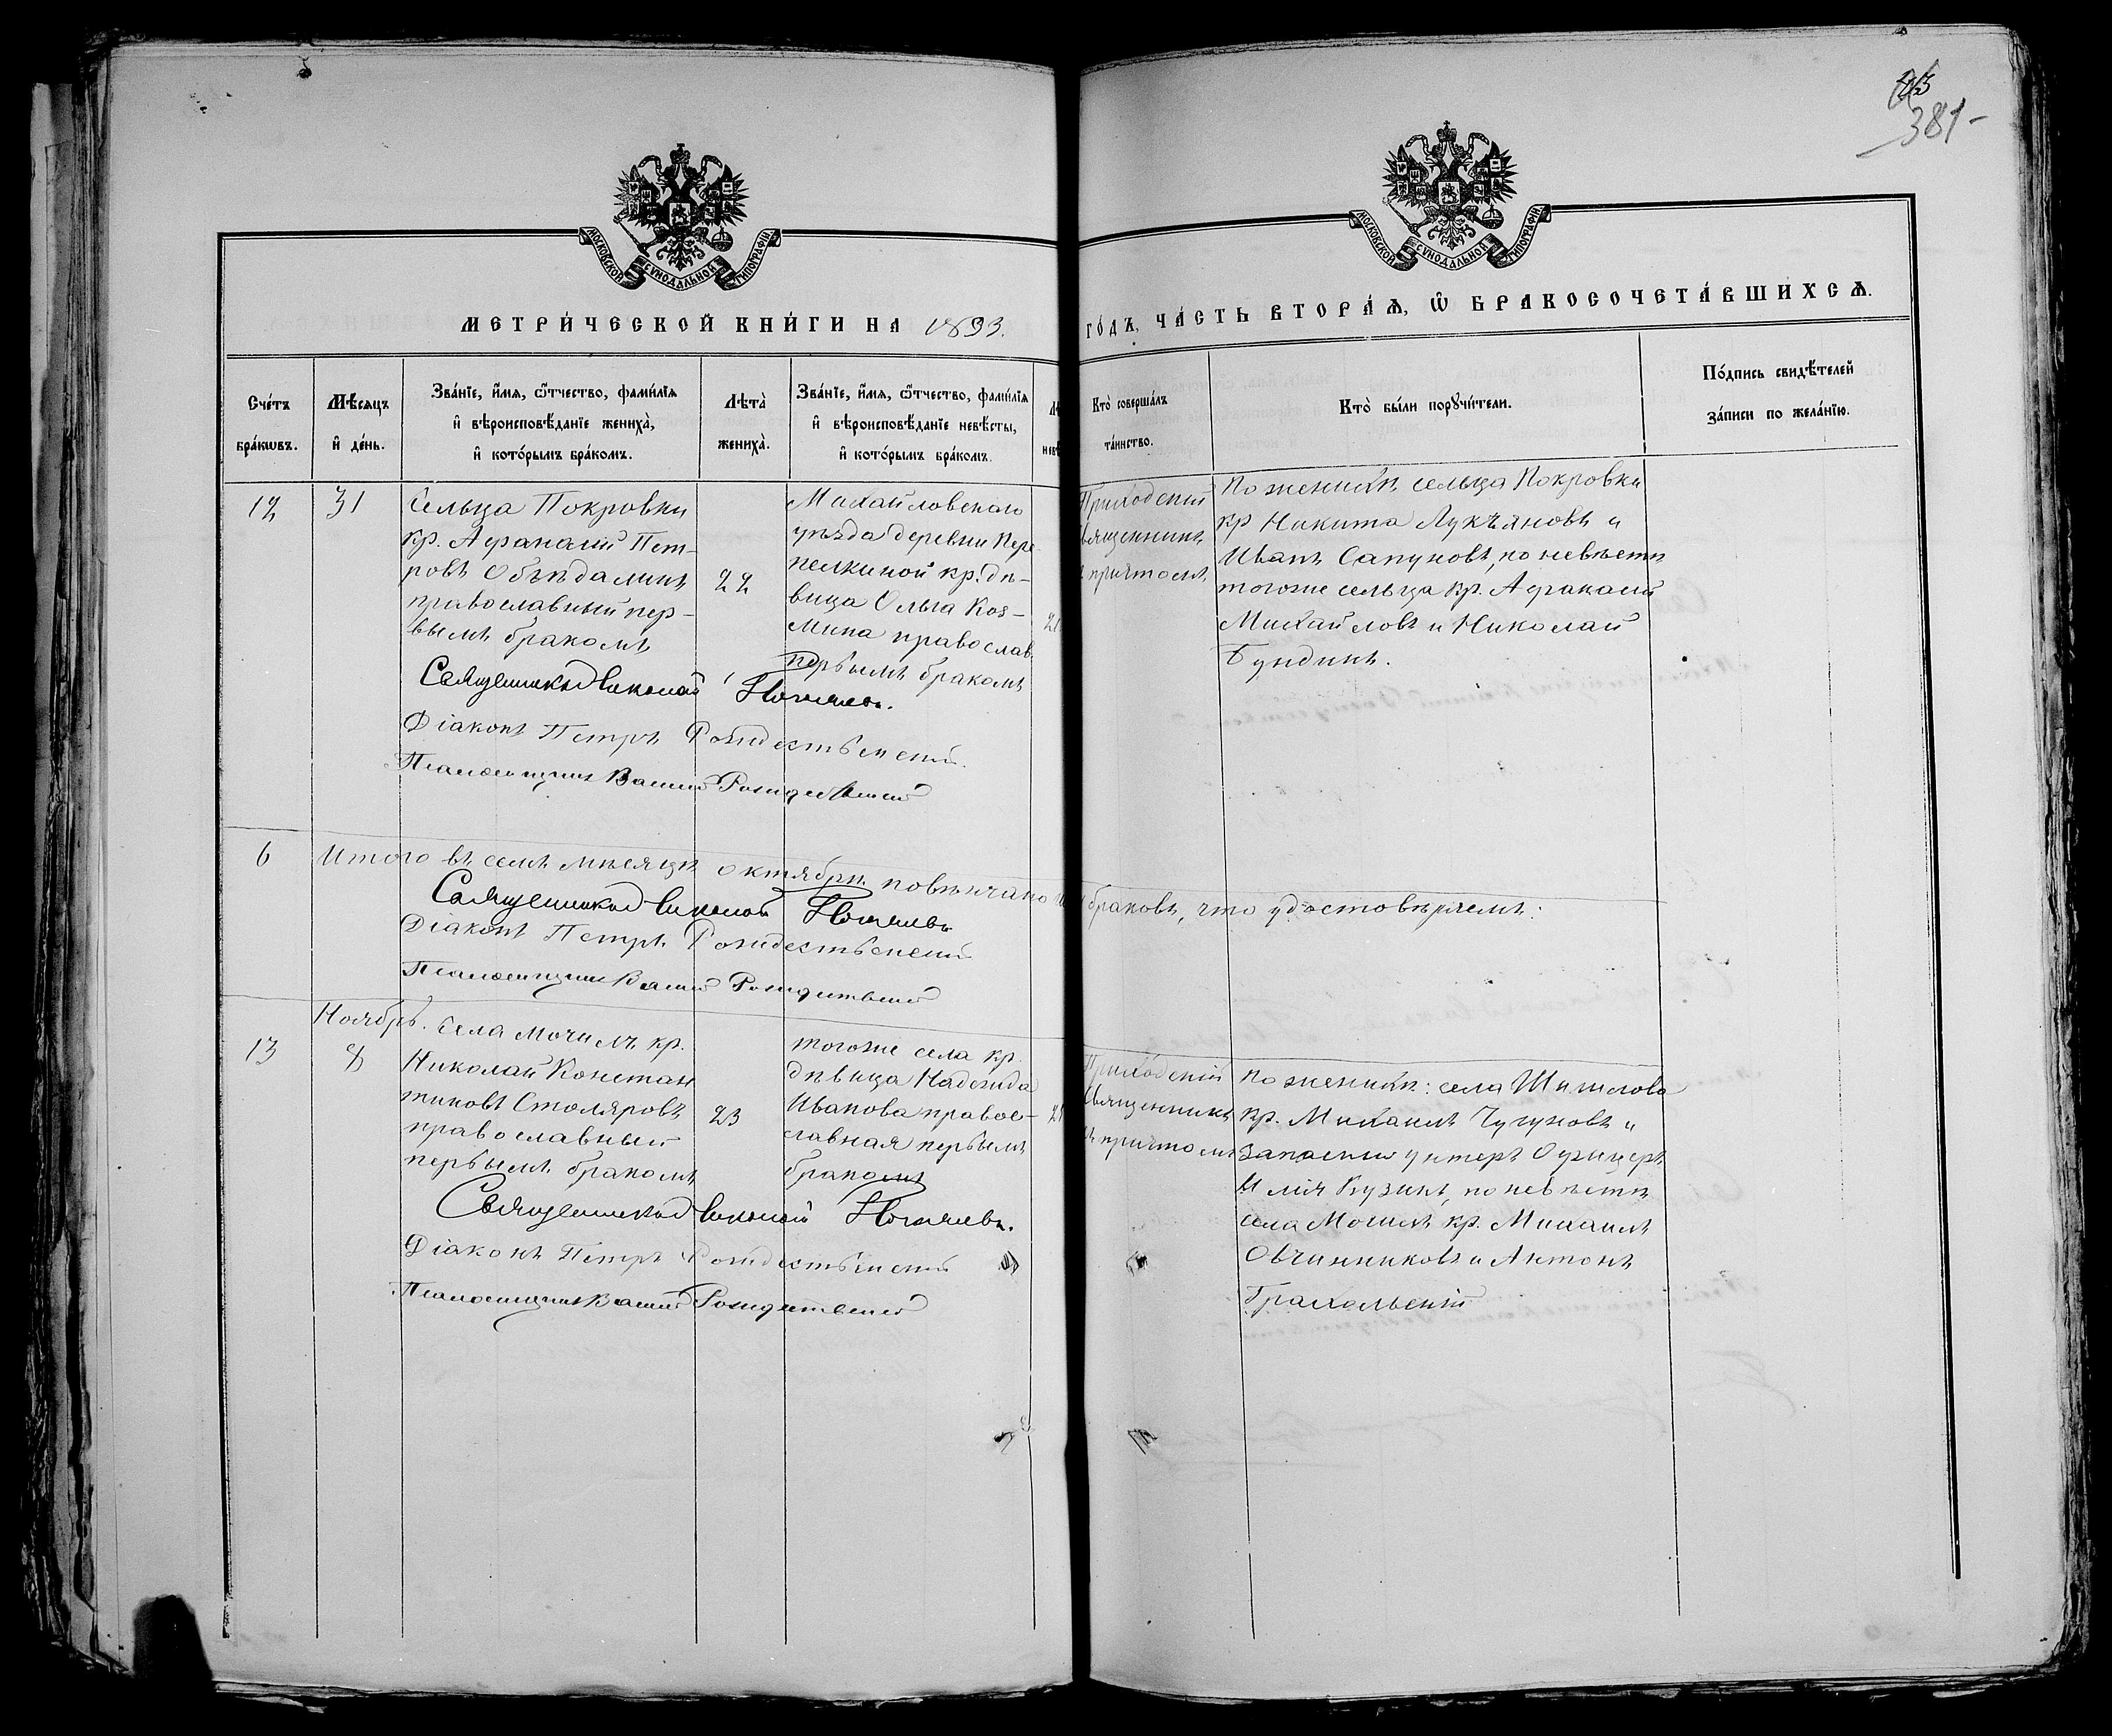 381-
МОСКОВСКОЙ СѴНОДАЛЬНОЙ ТИПОГРАФІИ
МОСКОВСКОЙ СѴНОДАЛЬНОЙ ТИПОГРАФІИ
МЕТРИ́ЧЕСКОЙ КНИ́ГИ НА 1893.
ГО́ДЪ, ЧА́СТЬ ВТОРА́Ѧ, Ѿ БРАКОСОЧЕТА́ВШИХСѦ.
Сче́тъ
бра́кѡвъ.
Мѣ́сѧцъ
и҆ де́нь.
Зва́нїе, и҆́мѧ, ѻ҆́тчество, фами́лїѧ
и҆ вѣроисповѣ́данїе жениха̀,
и҆ кото́рымъ бра́комъ.
Лѣта̀
жениха̀.
Зва́нїе, и҆́мѧ, ѻ҆́тчество, фами́лїѧ
и҆ вѣроисповѣ́данїе невѣ́сты,
и҆ кото́рымъ бра́комъ.
Кто̀ соверша́лъ
та́инство.
Кто̀ бы́ли порꙋчи́тели.
По́дпись свидѣ́телей
за́писи по жела́нїю.
12
31
Сельца Покровки
кр. Афанасий Пет-
ровъ Объѣдалинъ
православный пер-
вымъ бракомъ
22
Михайловскаго
уѣзда деревни Пере-
пелкиной кр. дѣ-
вица Ольга Коз-
мина православ.
первымъ бракомъ
21
Приходскій
священникъ
съ причтомъ
По женихѣ сельца Покровки
кр Никита Лукъяновъ и
Иванъ Сапуновъ, по невѣстѣ
тогоже сельца кр. Афанасий
Михайловъ и Николай
Бундинъ.
Священникъ Николай
Діаконъ Петръ Рождественскій
Псаломщикъ Василий Рождественский
6
Итого въ семъ мѣсяцѣ октябрѣ повѣнчано браковъ, что удостовѣряемъ:
Священникъ Николай
Діаконъ Петръ Рождественский
Псаломщикъ Василий Рождественский
Ноябрь.
13
8
Села Мочилъ кр.
Николай Констан
тиновъ Столяровъ
православный
первымъ бракомъ
23
тогоже села кр.
дѣвица Надежда
Иванова правос-
лавная первымъ
бракомъ
21
Приходскій
Священникъ
съ причтомъ
По женихѣ: села Шишлова
кр. Михаилъ Чугуновъ и
запасный унтеръ Офицеръ
Илія Кузинъ, по невѣстѣ
села Мочилъ кр. Михаилъ
Овчинниковъ и Антонъ
Священникъ Николай
Діаконъ Петръ Рождественский
Псаломщикъ Василий Рождественский